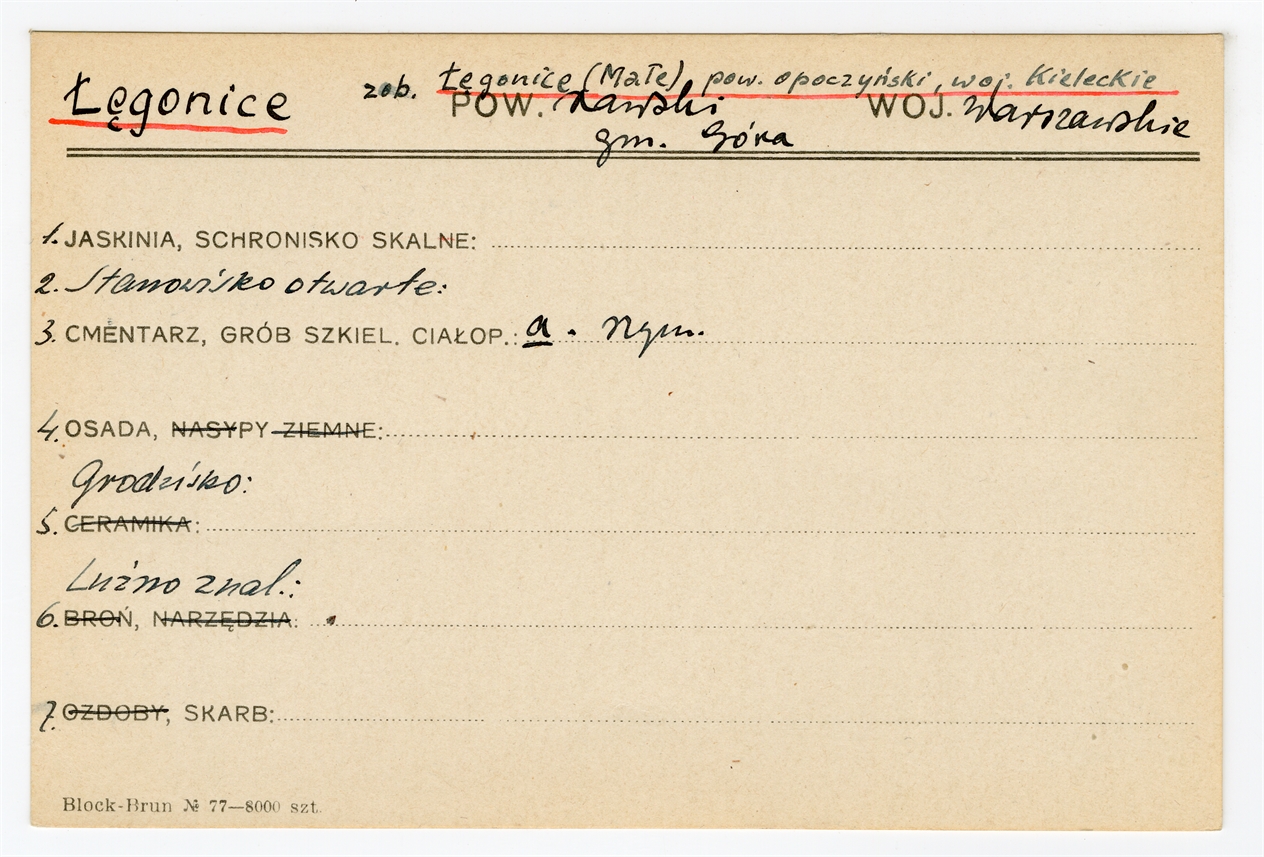 Łęgonice zob. Łęgonice (Małe), pow. opoczyński, woj. Kieleckie
POW. rawski WOJ. warszawskie
gm. Góra
1. JASKINIA, SCHRONISKO SKALNE:
2. Stanowisko otwarte:
3. CMENTARZ, GRÓB SZKIEL. CIAŁOP.: a. rzym.
4. OSADA, NASYPY ZIEMNE:
Grodzisko:
5. CERAMIKA:
Luźno znal.:
6. BROŃ, NARZĘDZIA:
7. OZDOBY, SKARB:
Block-Brun № 77—8000 szt.